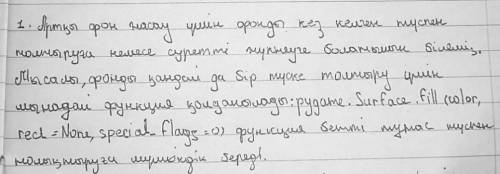 1. Артқы фон жасау үшін фонды кез келген түспен
толтыруға немесе суретті жүктеуге болатынын білеміз.
Мысалы, фонды қандай да бір түске толтыру үшін
мынадай функция қолданылады: pygame. Surface. fill (color,
rect = None, special_flags = 0) функция бетті тұтас түспен
толықтыруға мүмкіндік береді.